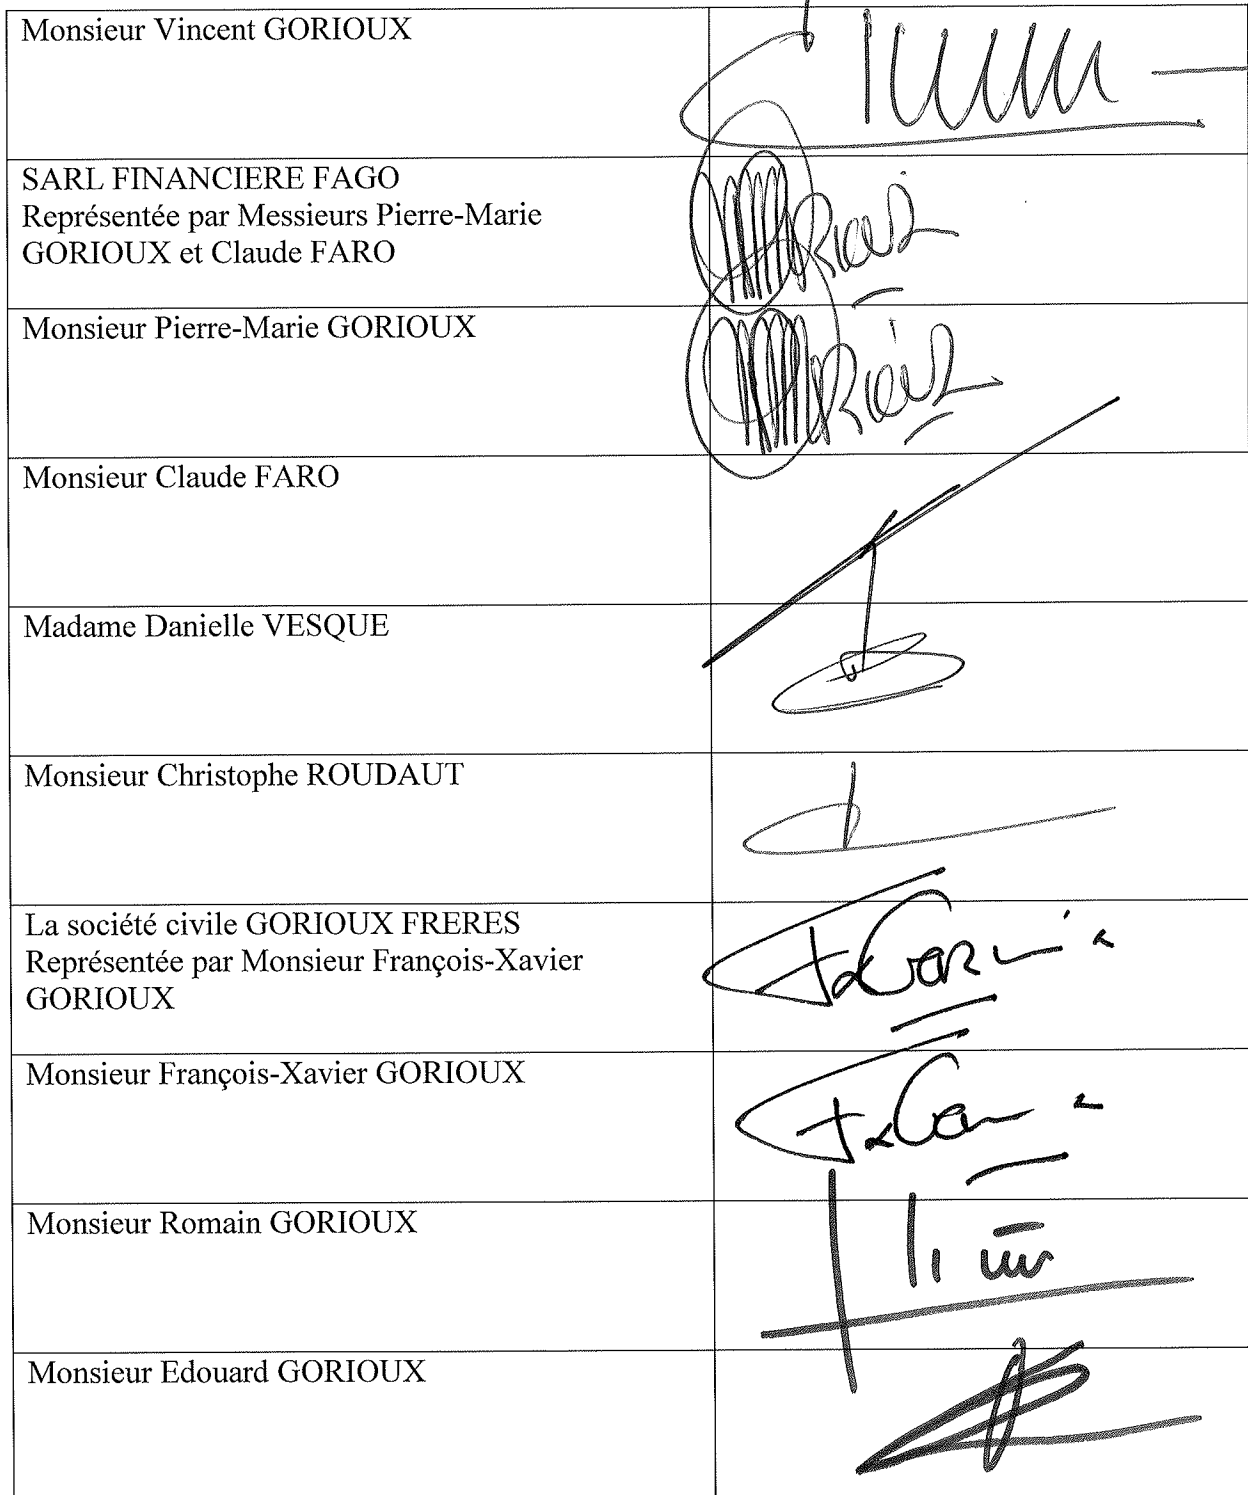 Monsieur Vincent GORIOUX
SARL FINANCIERE FAGO
Représentée par Messieurs Pierre-Marie
GORIOUX et Claude FARO
Monsieur Pierre-Marie GORIOUX
Monsieur Claude FARO
Madame Danielle VESQUE
Monsieur Christophe ROUDAUT
La société civile GORIOUX FRERES
Représentée par Monsieur François-Xavier
GORIOUX
Monsieur François-Xavier GORIOUX
Monsieur Romain GORIOUX
Monsieur Edouard GORIOUX